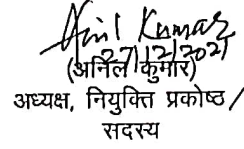 Anil Kumar
27/12/2021
(अनिल कुमार)
अध्यक्ष, नियुक्ति प्रकोष्ठ /
सदस्य